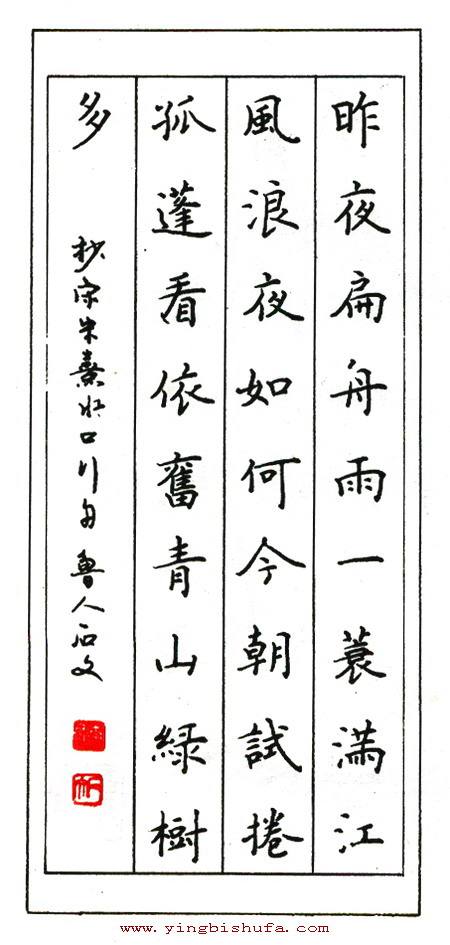 昨夜扁舟雨一蓑滿江
風浪夜如何今朝試捲
孤蓬看依舊青山綠樹
多
抄宋朱熹水口行舟 魯人石文
www.yingbishufa.com